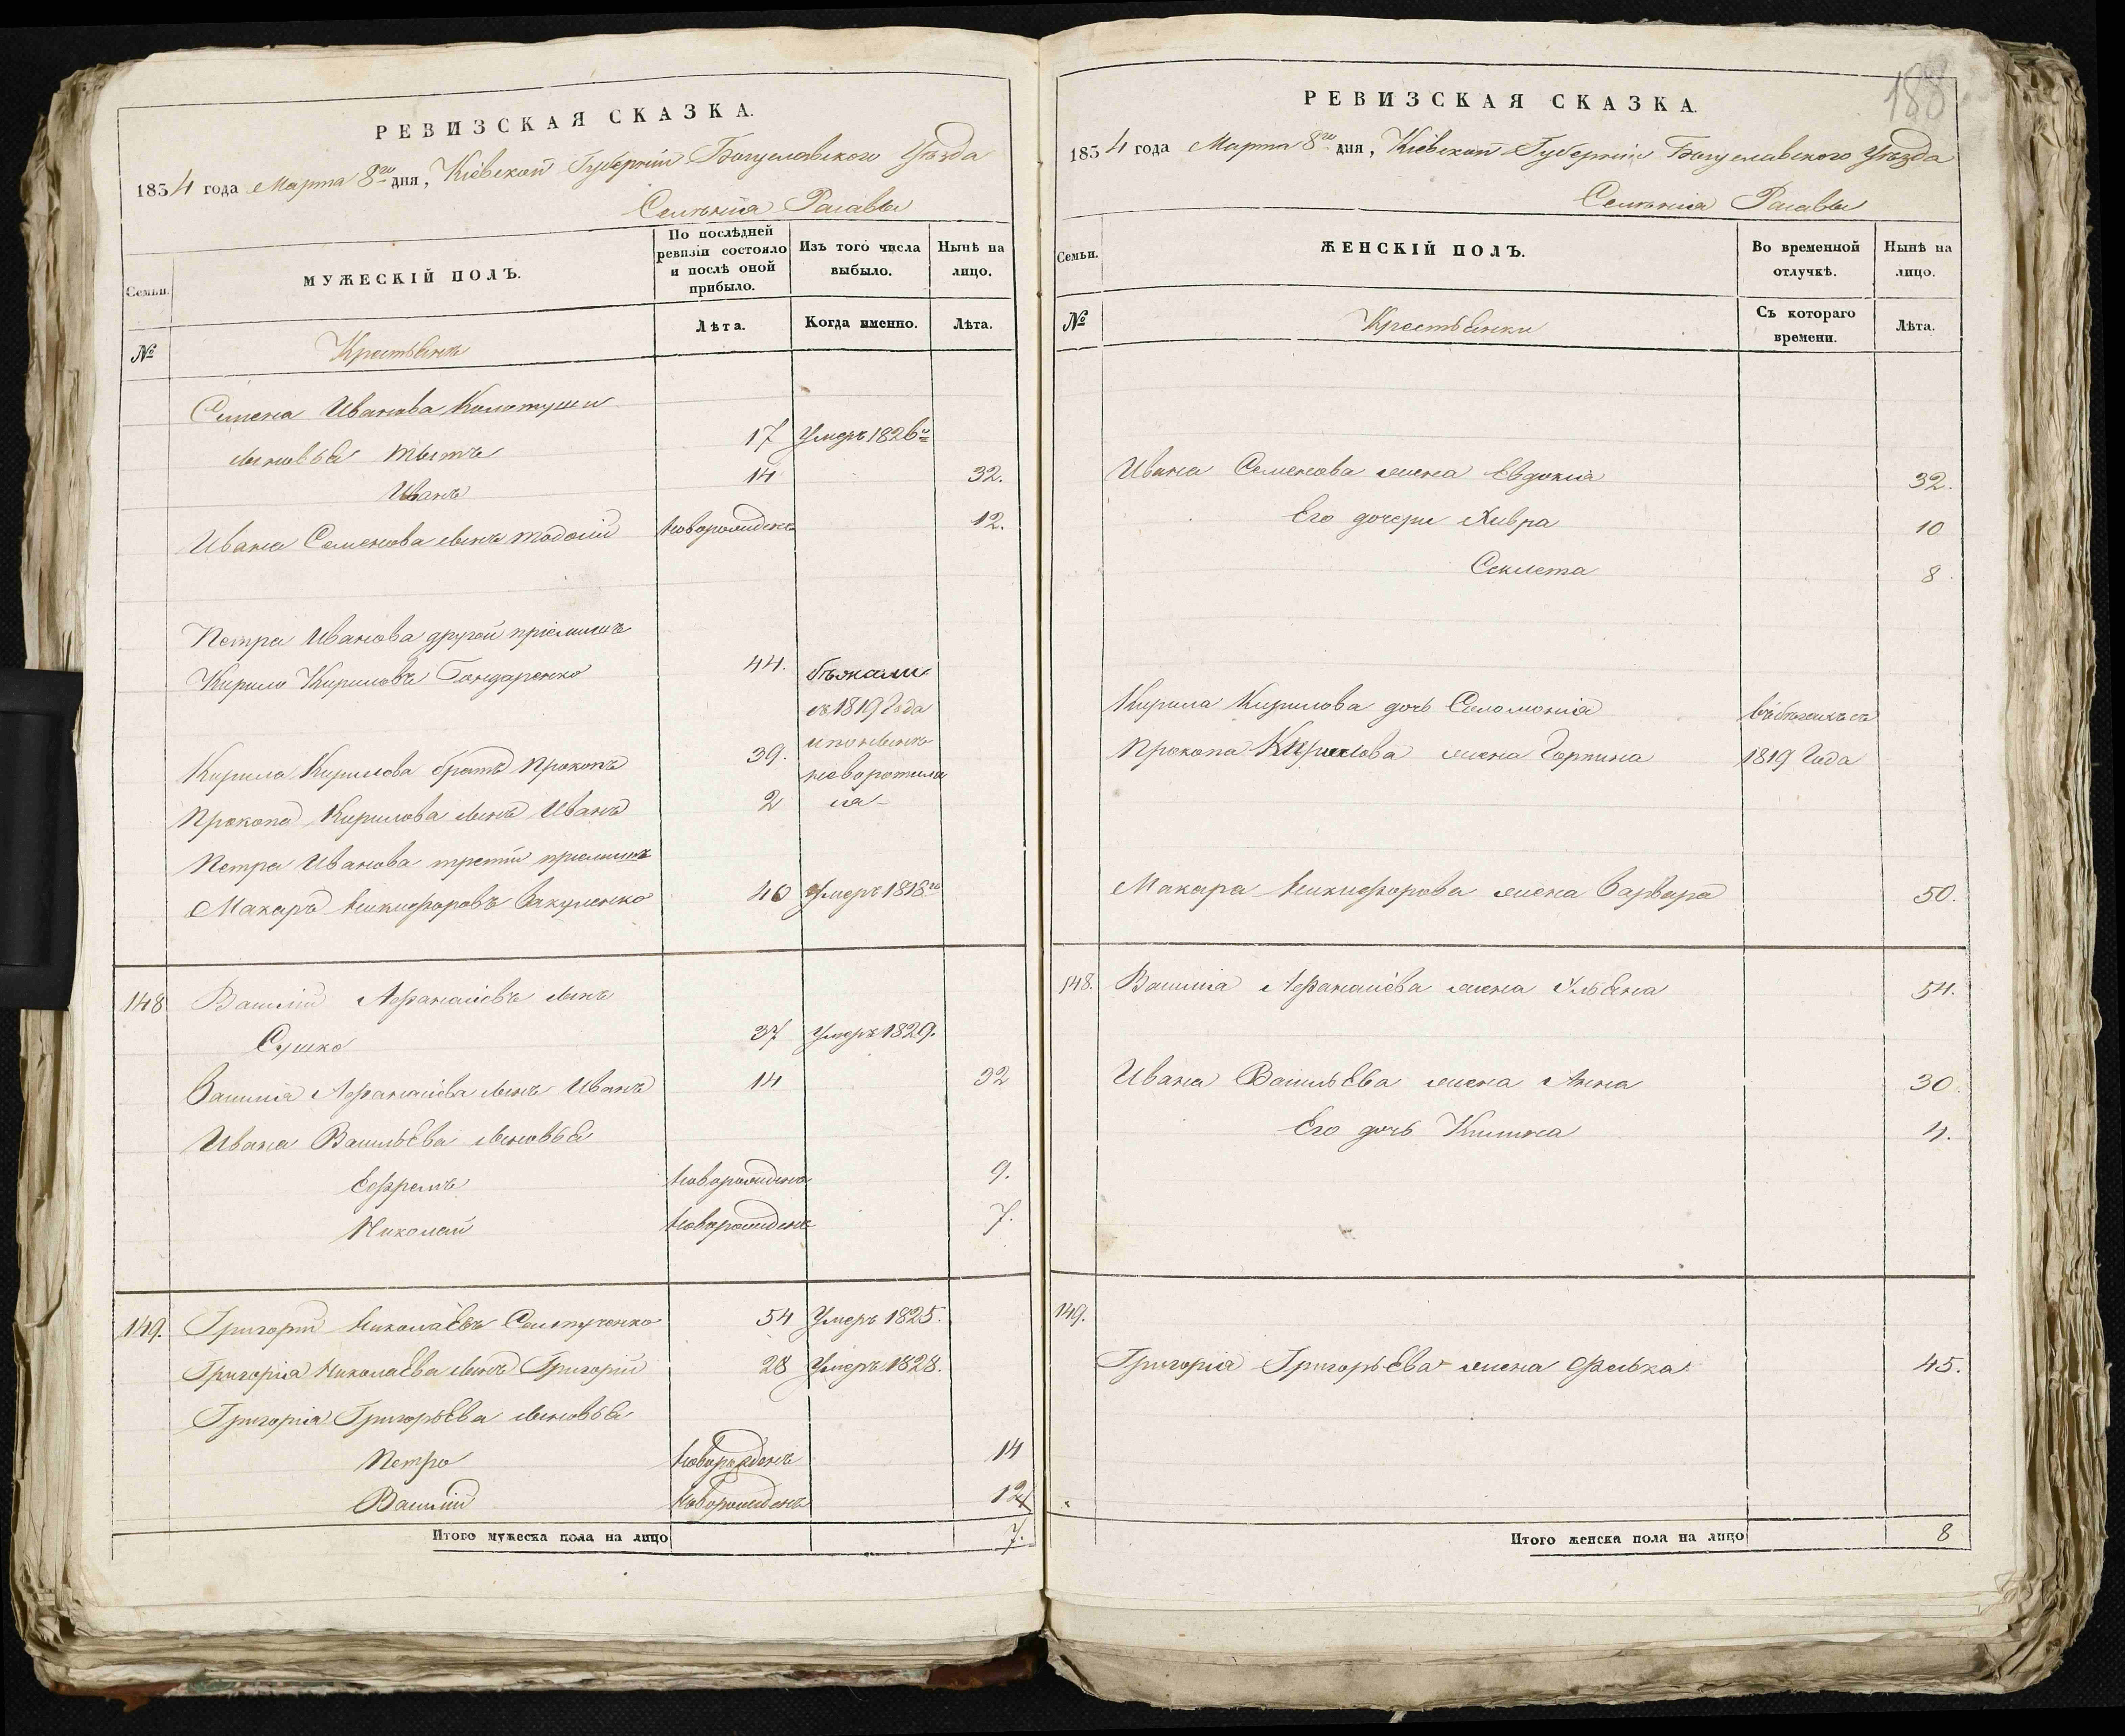 РЕВИЗСКАЯ СКАЗКА.
1834 года Марта 8го дня, Кіевской Губерніи Богуславского Уѣзда
Селѣнія Расавы
Семьи.
МУЖЕСКІЙ ПОЛЪ.
По послѣдней ревизіи состояло и послѣ оной прибыло.
Изъ того числа выбыло.
Нынѣ на лицо.
№
Крестьянъ
Лѣта.
Когда именно.
Лѣта.
Семена Иванова
сыновья 17 Умеръ 1826го
Иванъ 14 32.
Ивана Семенова сынъ Тодосій Новорожденъ 12.
Петра Иванова другой пріемышъ
Кирило Кириловъ Бондаренко 44. бѣжали
съ 1819 Года
и по нынѣ
Кирила Кирилова братъ Прокопъ 39. не воротили
Прокопа Кирилова сынъ Иванъ 2 ся
Петра Иванова третій пріемышъ
Макаръ Никифоровъ Вакуленко 40 Умеръ 1818го
148 Василій Афанасіевъ сынъ
Сушко 37 Умеръ 1829.
Василія Афанасіева сынъ Иванъ 14 32
Ивана Васильева сыновья
Ефремъ Новорожденъ 9.
Николай Новорожденъ 7.
149. Григорій Николаевъ 54 Умеръ 1825.
Григорія Николаева сынъ Григорій 28 Умеръ 1828.
Григорія Григорьева сыновья
Петро Новорожденъ 14
Василій Новорожденъ 12
Итого мужеска пола на лицо 7.
188
РЕВИЗСКАЯ СКАЗКА.
1834 года Марта 8го дня, Кіевской Губерніи Богуславского Уѣзда
Селѣнія Расавы
Семьи.
ЖЕНСКІЙ ПОЛЪ.
Во временной отлучкѣ.
Нынѣ на лицо.
№
Крестьянки
Съ котораго времени.
Лѣта.
Ивана Семенова жена Евдокія 32.
Его дочери Хивря 10
Секлета 8
Кирила Кирилова дочь Соломонія въ бѣгахъ съ
Прокопа Кирилова жена Горпина 1819 Года
Макара Никифорова жена Варвара 50.
148. Василія Афанасіева жена Ульяна 54.
Ивана Васильева жена Анна 30
Его дочь Килина 4.
149.
Григорія Григорьева жена Феська 45.
Итого женска пола на лицо 8